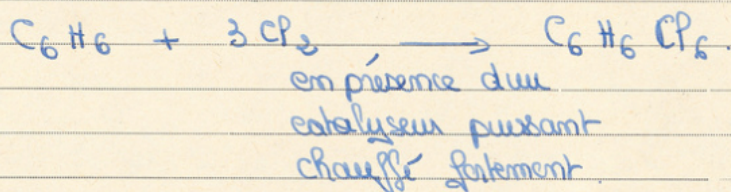 C₆H₆ + 3Cl₂ ⟶ C₆H₆Cl₆.
en présence d'un
catalyseur puissant
chauffé fortement.